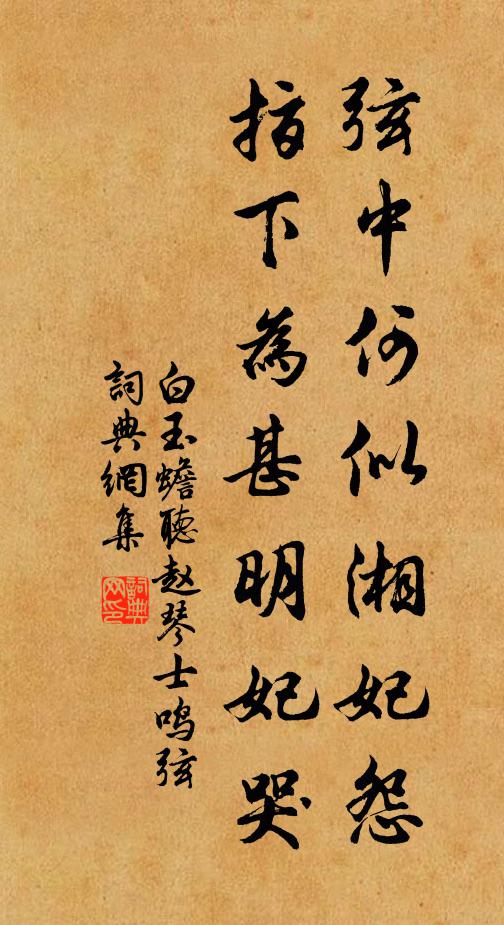 弦中何似湘妃怨
指下為甚明妃哭
白玉蟾聽赵琴士鸣弦
詞典網集
詞典
网印